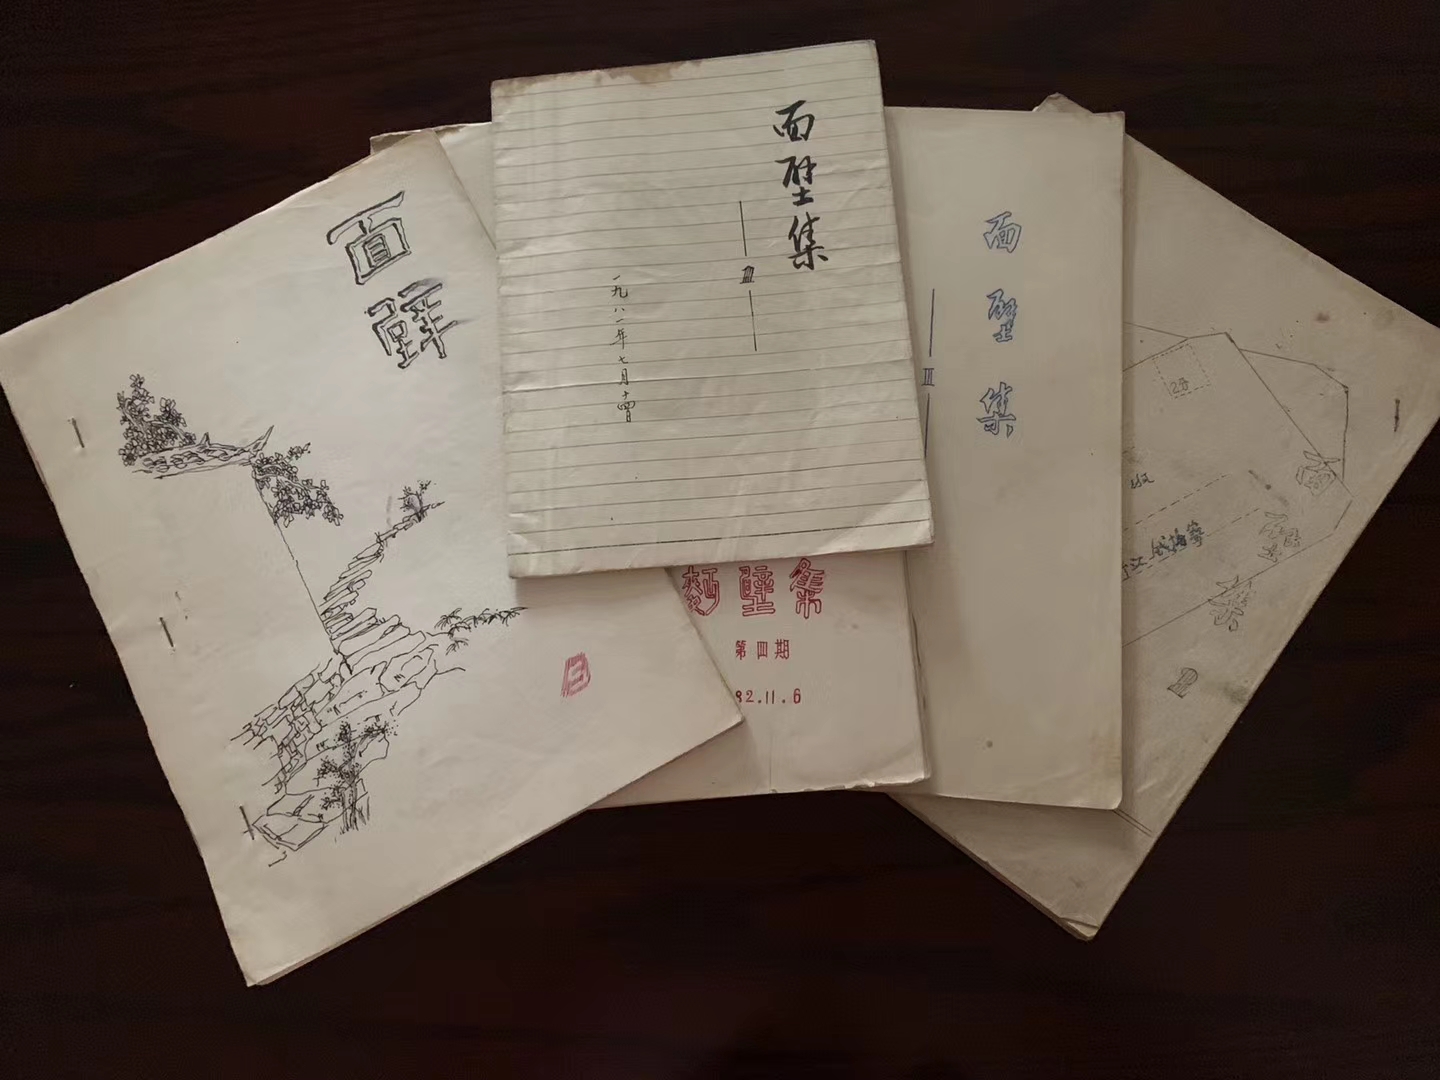 面壁
面壁集
III
一九八一年七月十四日
面壁集
第四期
82.11.6
面壁集
II
2分
面壁集